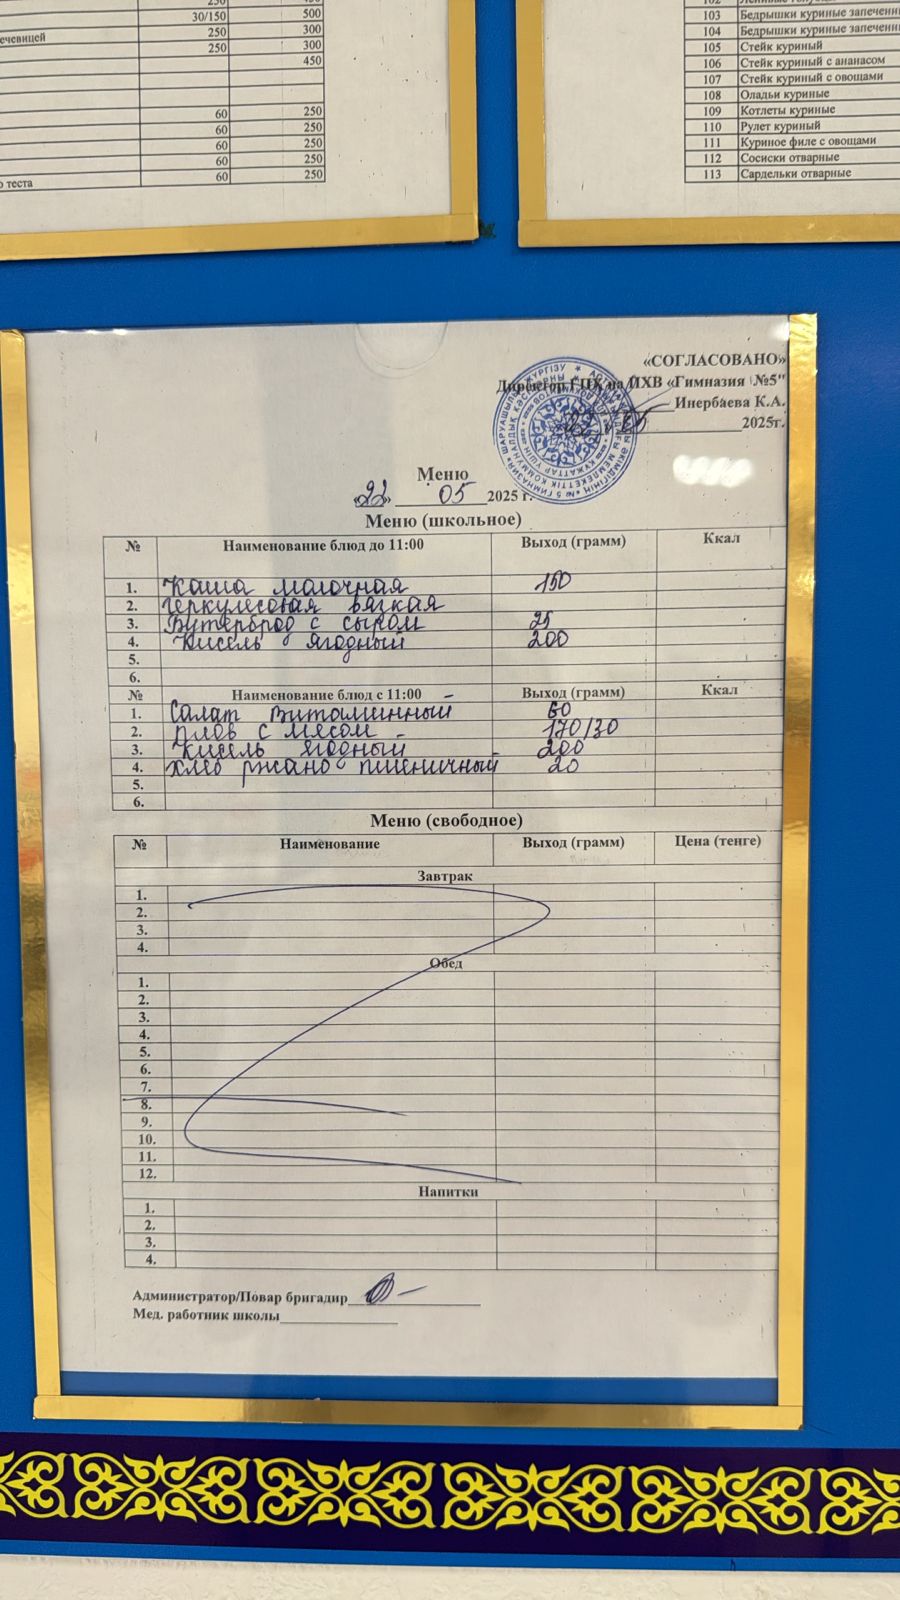 250
30/150 500
ечевицей 250 300
250 300
450
60 250
60 250
60 250
60 250
о теста 60 250
103 Бедрышки куриные запеченн
104 Бедрышки куриные запеченн
105 Стейк куриный
106 Стейк куриный с ананасом
107 Стейк куриный с овощами
108 Оладьи куриные
109 Котлеты куриные
110 Рулет куриный
111 Куриное филе с овощами
112 Сосиски отварные
113 Сардельки отварные
«СОГЛАСОВАНО»
Директор ГПХ на ПХВ «Гимназия №5"
Инербаева К.А.
2025г.
Меню
«22» 05 2025 г.
Меню (школьное)
№ Наименование блюд до 11:00 Выход (грамм) Ккал
1. Каша молочная 150
2. геркулесовая вязкая
3. Бутерброд с сыром 25
4. Кисель ягодный 200
5.
6.
№ Наименование блюд с 11:00 Выход (грамм) Ккал
1. Салат витаминный 60
2. плов с мясом 170/30
3. Кисель ягодный 200
4. хлеб ржано пшеничный 20
5.
6.
Меню (свободное)
№ Наименование Выход (грамм) Цена (тенге)
Завтрак
1.
2.
3.
4.
Обед
1.
2.
3.
4.
5.
6.
7.
8.
9.
10.
11.
12.
Напитки
1.
2.
3.
4.
Администратор/Повар бригадир
Мед. работник школы